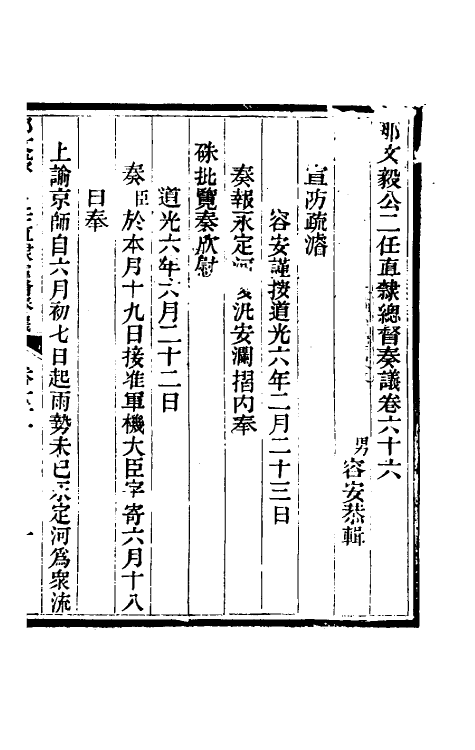 那文毅公二任直隸總督奏議卷六十六
男容安恭輯
宣防疏濬
容安謹按道光六年二月二十三日
奏報永定河凌汛安瀾摺內奉
硃批覽奏欣慰
道光六年六月二十二日
奏臣於本月十九日接准軍機大臣字寄六月十八
日奉
上諭京師自六月初七日起雨勢未已永定河爲衆流